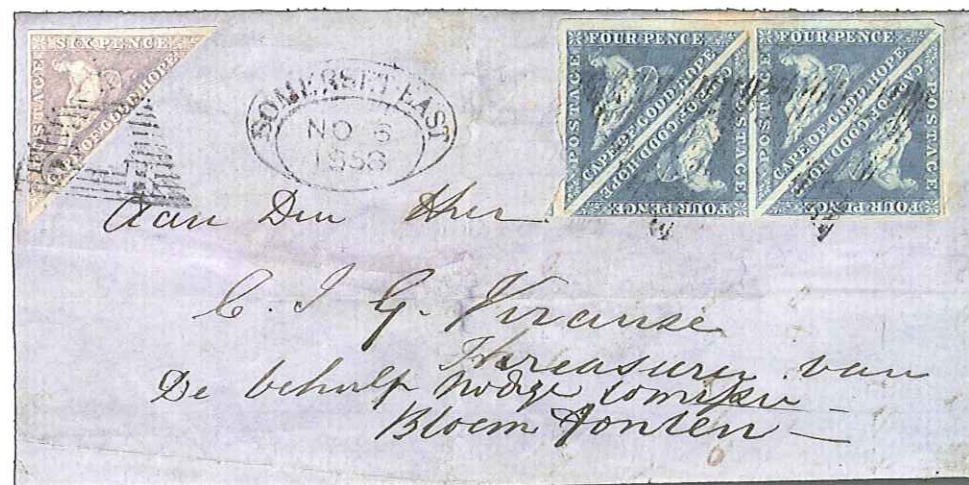 SIX PENCE
POSTAGE
CAPE OF GOOD HOPE
SOMERSET-EAST
NO 6
1858
FOUR PENCE
POSTAGE
CAPE OF GOOD HOPE
CAPE OF GOOD HOPE
POSTAGE
FOUR PENCE
FOUR PENCE
POSTAGE
CAPE OF GOOD HOPE
CAPE OF GOOD HOPE
POSTAGE
FOUR PENCE
Aan Den Heer
C. J. G. Vrause
Threasurer van
De behulp nodge
Bloem fonten